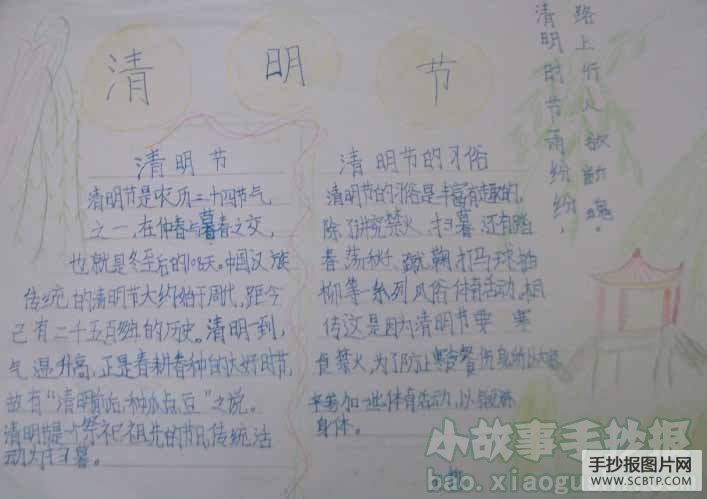 清 明 节
路上行人欲断魂。
清明时节雨纷纷,
清明节
清明节是农历二十四节气
之一,在仲春与暮春之交,
也就是冬至后的108天。中国汉族
传统的清明节大约始于周代,距今
已有二千五百多年的历史。清明一到,
气温升高,正是春耕春种的大好时节,
故有“清明前后,种瓜点豆”之说。
清明节是一个祭祀祖先的节日,传统活
动为扫墓。
清明节的习俗
清明节的习俗是丰富有趣的,
除了讲究禁火、扫墓,还有踏
春、荡秋千、蹴鞠、打马球、插
柳等一系列风俗体育活动。相
传这是因为清明节要 寒
食禁火,为了防止寒食餐伤身,所以大家
来参加一些体育活动,以锻炼
身体。
小故事手抄报
bao.xiaogu
手抄报图片网
WWW.SCBTP.COM